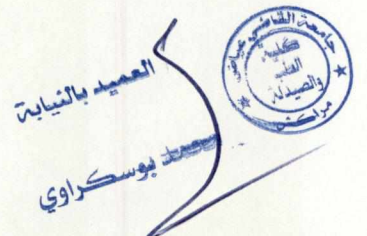 العميد بالنيابة
محمد بوسكراوي
جامعة القاضي عياض
كلية
الطب
والصيدلة
مراكش